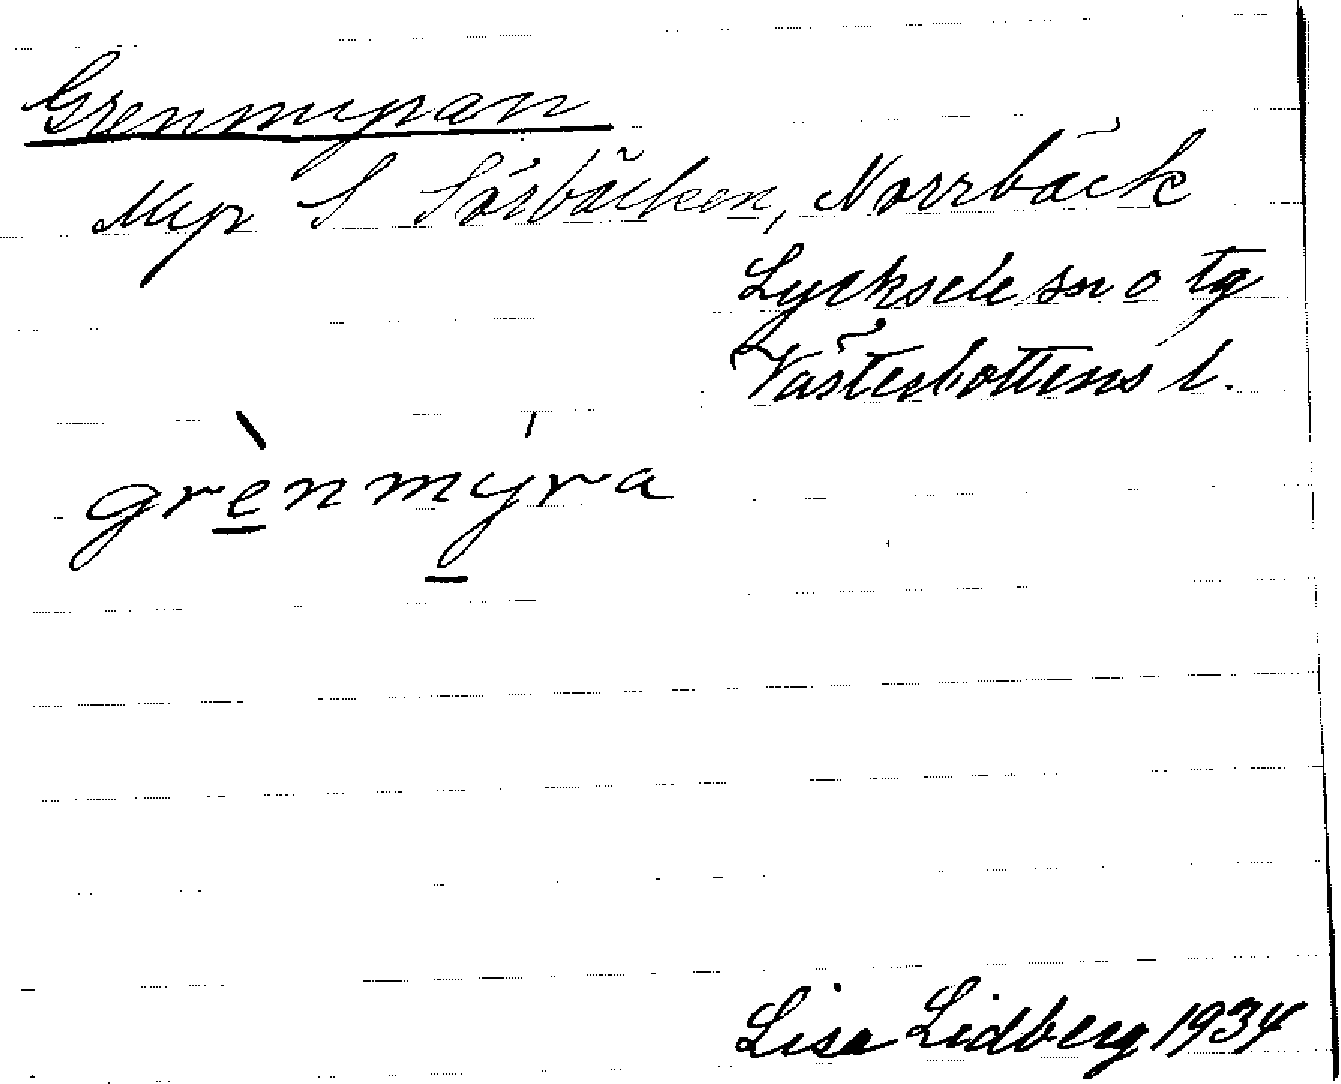 Grenmyran
Myr S Sörbäcken, Norrbäck
Lycksele sn o tg
Västerbottens l.
grènmýra
Lisa Lidberg 1934